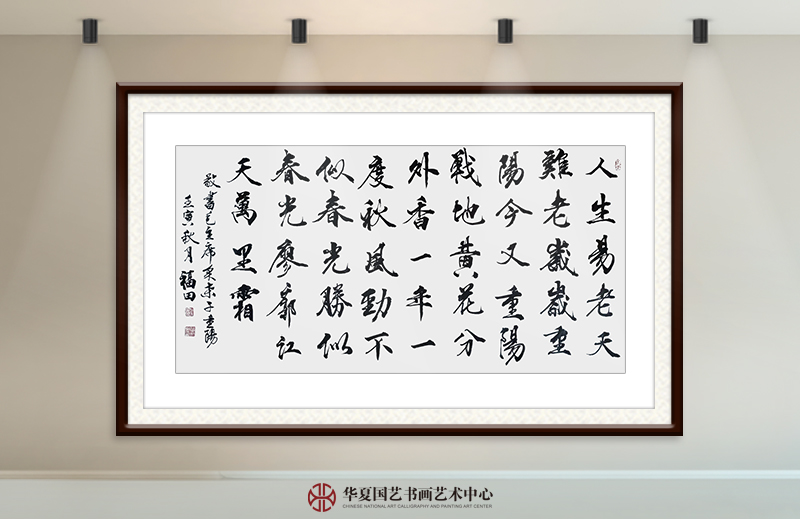 人生易老天
難老歲歲重
陽今又重陽
戰地黄花分
外香一年一
度秋風勁不
似春光勝似
春光廖廓江
天萬里霜
敬書毛主席采桑子重陽
壬寅秋月福田
华夏国艺书画艺术中心
CHINESE NATIONAL ART CALLIGRAPHY AND PAINTING ART CENTER